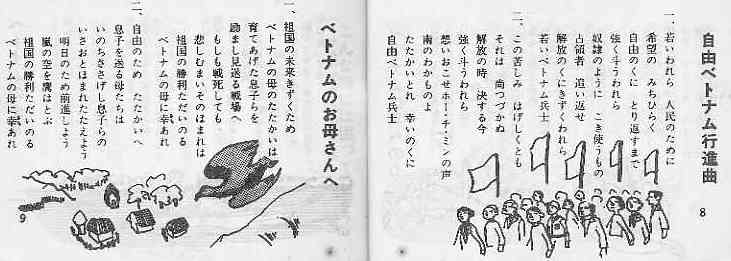 自由ベトナム行進曲
一、若いわれら 人民のために
希望の みちひらく
自由のくに とり返すまで
強く斗うわれら
奴隷のように こき使うもの
占領者 追い返せ
解放のくにきずくわれら
若いベトナム兵士
二、この苦しみ はげしくとも
それは 尚つづかぬ
解放の時 決する今
強く斗うわれら
想いおこせホー・チ・ミンの声
南のわかものよ
たたかいとれ 幸いのくに
自由ベトナム兵士
8
ベトナムのお母さんへ
一、祖国の未来きずくため
ベトナムの母のたたかいは
育てあげた息子らを
励まし見送る戦場へ
もしも戦死しても
悲しむまいそのほまれは
祖国の勝利ただいのる
ベトナムの母に幸あれ
二、自由のため たたかいへ
息子を送る母たちは
いのちささげし息子らの
いさおとほまれたたえよう
明日のため前進しよう
嵐の空を鷹はとぶ
祖国の勝利ただいのる
ベトナムの母に幸あれ
9